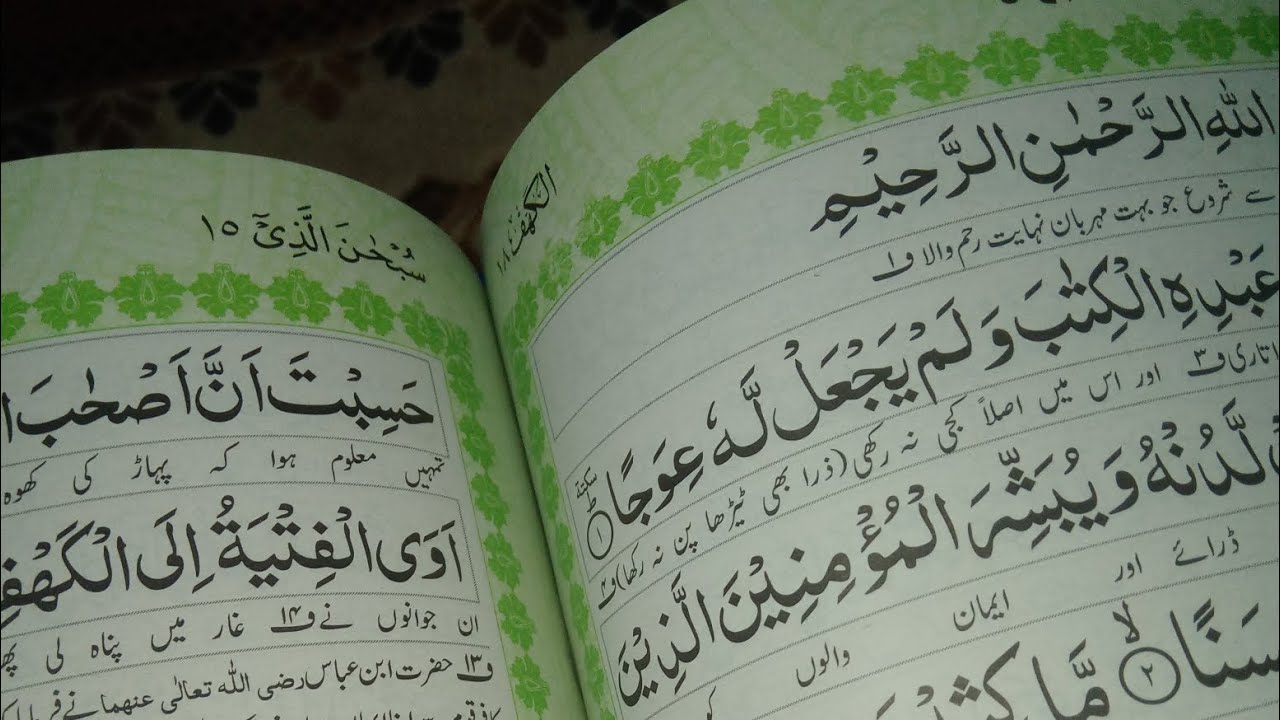 الكهف ١٨
اللّٰهِ الرَّحْمٰنِ الرَّحِيْمِ
سے شروع جو بہت مہربان نہایت رحم والا ف۱
عَبْدِهِ الْكِتٰبَ وَلَمْ يَجْعَلْ لَّهٗ عِوَجًا ؕ سکتة ۱
اتاری ف۳ اور اس میں اصلاً کجی نہ رکھی (ذرا بھی ٹیڑھا پن نہ رکھا) ف۴
لَّدُنْهُ وَيُبَشِّرَ الْمُؤْمِنِيْنَ الَّذِيْنَ
ڈرائے اور ایمان والوں کو
سَنًا ۙ ۲ مَّا
سُبْحٰنَ الَّذِيْٓ ١٥
حَسِبْتَ اَنَّ اَصْحٰبَ
تمہیں معلوم ہوا کہ پہاڑ کی کھوہ
اَوَى الْفِتْيَةُ اِلَى الْكَهْفِ
ان جوانوں نے ف۱۴ غار میں پناہ لی پھر
ف۱۳ حضرت ابن عباس رضی اللہ تعالٰی عنہما نے فرمایا